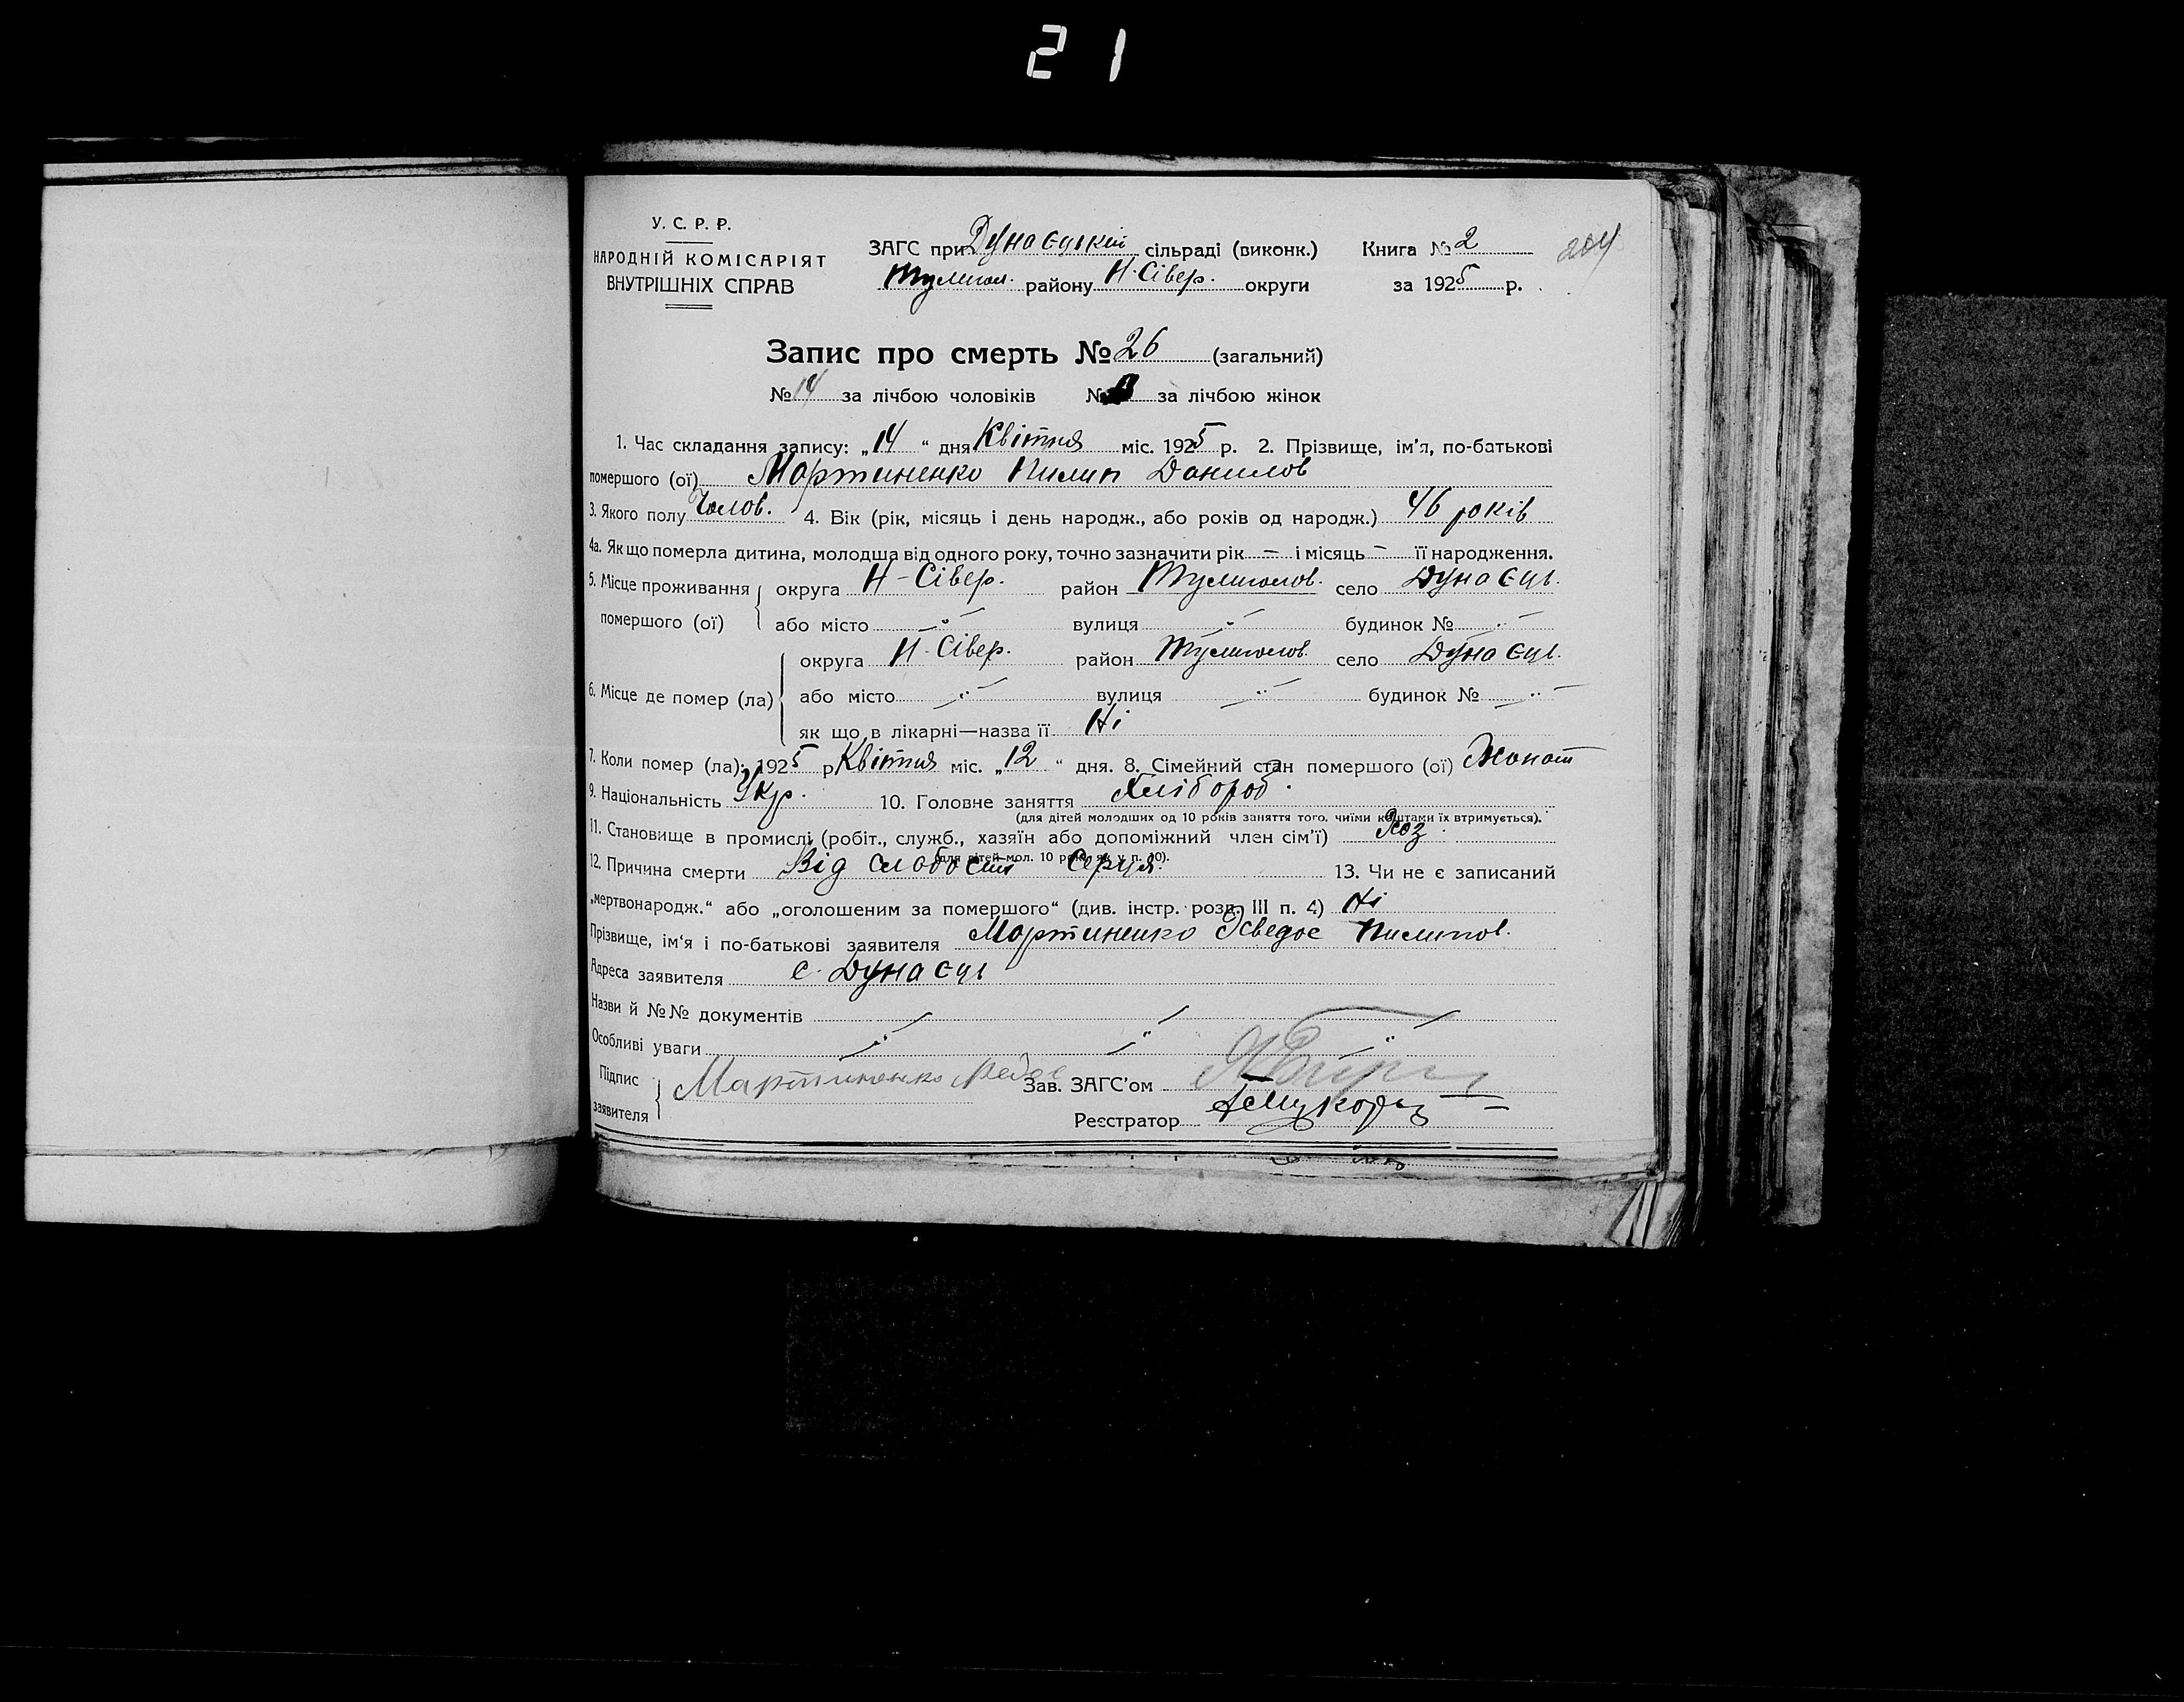 21
У. С. Р. Р.
НАРОДНІЙ КОМІСАРІЯТ
ВНУТРІШНІХ СПРАВ
ЗАГС при Дунаєцькій сільраді (виконк.) Книга № 2 204
Тулигол. району Н-Сівер. округи за 1925 р.
Запис про смерть № 26 (загальний)
№ 14 за лічбою чоловіків № за лічбою жінок
1. Час складання запису: „14“ дня Квітня міс. 1925 р. 2. Прізвище, ім'я, по-батькові
помершого (ої) Мартиненко Пилип Данилов
3. Якого полу Чолов. 4. Вік (рік, місяць і день народж., або років од народж.) 46 років
4а. Як що померла дитина, молодша від одного року, точно зазначити рік — і місяць — її народження.
5. Місце проживання округа Н-Сівер. район Тулиголов. село Дунаєць.
помершого (ої) або місто -"- вулиця -"- будинок № -"-
округа Н-Сівер. район Тулиголов. село Дунаєць.
6. Місце де помер (ла) або місто -"- вулиця -"- будинок № -"-
як що в лікарні—назва її Ні
7. Коли помер (ла): 1925 р Квітня міс. „12“ дня. 8. Сімейний стан помершого (ої) Жонат
9. Національність Укр. 10. Головне заняття Хлібороб.
(для дітей молодших од 10 років заняття того, чиїми коштами їх втримується).
11. Становище в промислі (робіт., служб., хазяїн або допоміжний член сім'ї) Хоз.
(для дітей мол. 10 рок. як у п. 10).
12. Причина смерти Від слабости серця. 13. Чи не є записаний
„мертвонародж.“ або „оголошеним за помершого“ (див. інстр. розд. III п. 4) Ні
Прізвище, ім'я і по-батькові заявителя Мартиненко Пилипов.
Адреса заявителя с. Дунаєць
Назви й №№ документів
Особливі уваги
Підпис Мартиненко Зав. ЗАГС'ом
заявителя Реєстратор